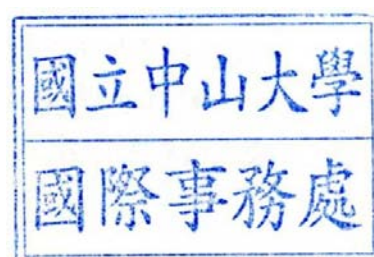 國立中山大學
國際事務處